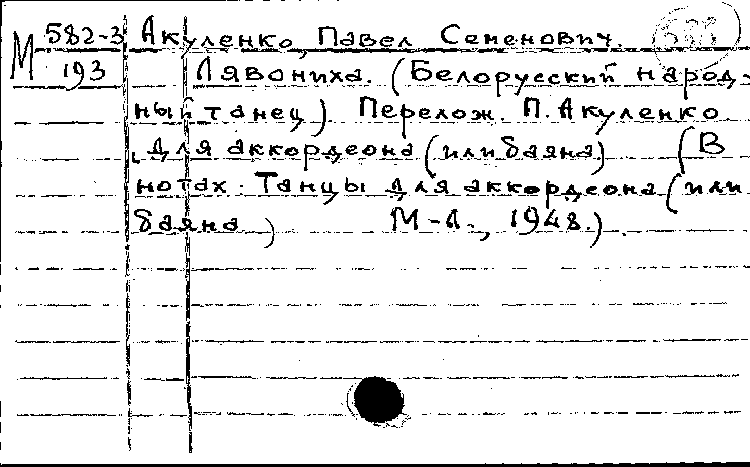 М 582-3 Акуленко, Павел Семенович.
193 Лявониха. (Белорусский народ-
ный танец). Перелож. П. Акуленко
для аккордеона (или баяна) (В
нотах: Танцы для аккордеона (или
баяна) М-Л., 1948.).